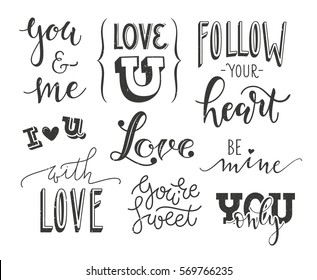 you
&
me
LOVE
U
FOLLOW
-YOUR-
heart
I ♥ U
Love
BE
mine
with
LOVE
You're
Sweet
YOU
only
shutterstock.com · 569766235